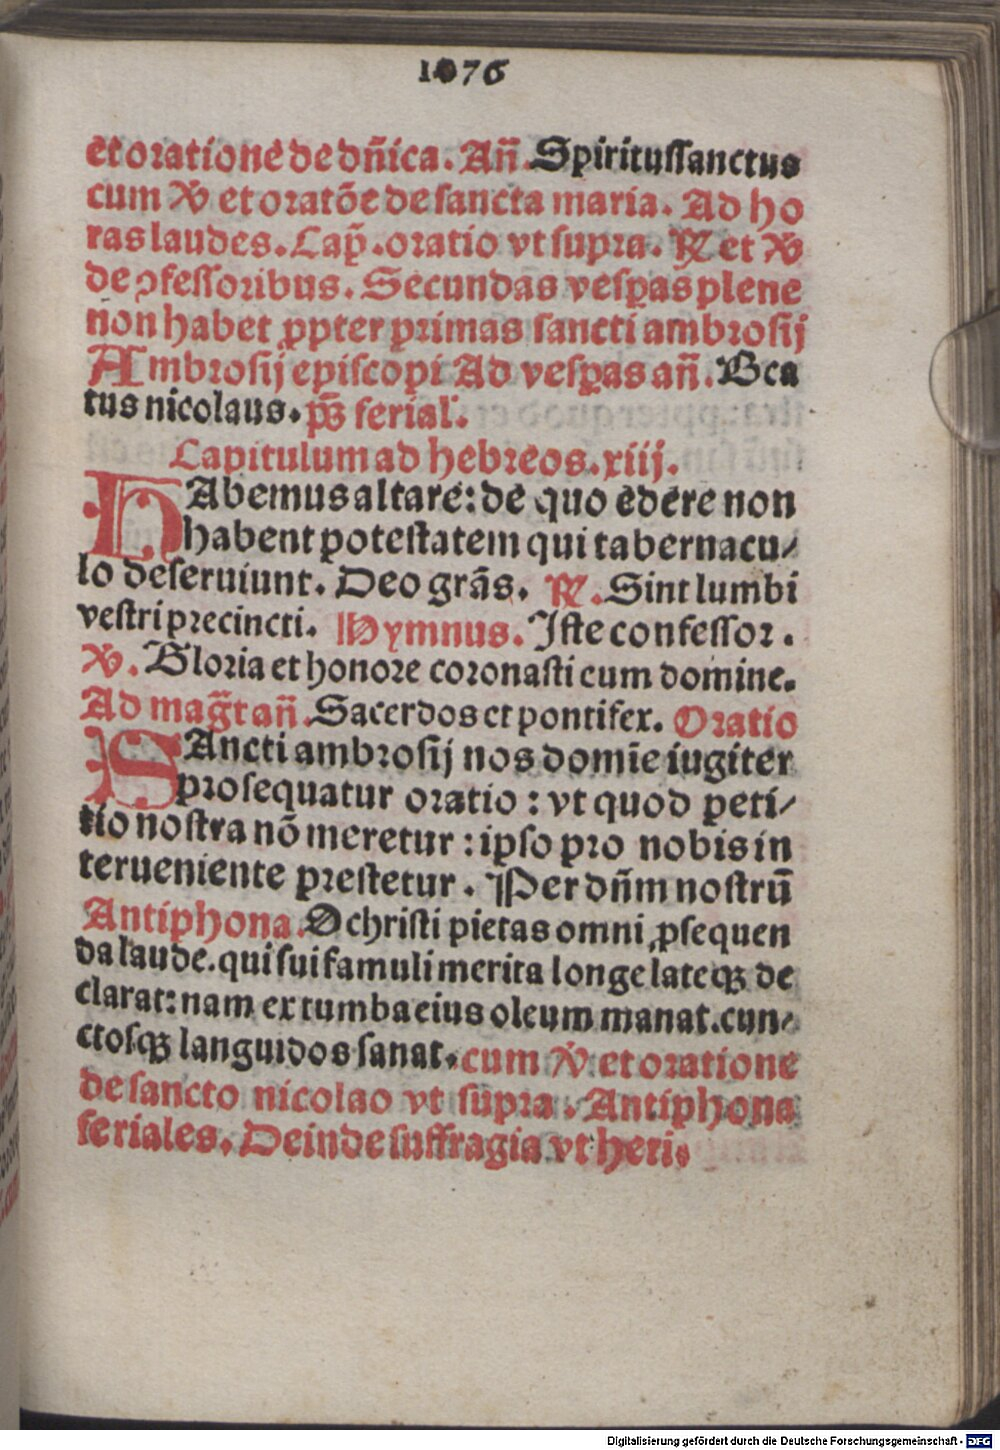 1076
et oratione de dñica. Añ. Spiritussanctus
cum ℣ et oratõe de sancta maria. Ad ho
ras laudes. Cap̃. oratio vt supra. ℟ et ℣
de ꝯfessoribus. Secundas vesꝑas plene
non habet ꝓpter primas sancti ambrosij
Ambrosij episcopi Ad vesꝑas añ. Bea
tus nicolaus. ps̃ ferial'.
Capitulum ad hebreos. xiij.
HAbemus altare: de quo edere non
habent potestatem qui tabernacu⸗
lo deseruiunt. Deo grãs. ℟. Sint lumbi
vestri precincti. Hymnus. Iste confessor.
℣. Gloria et honore coronasti eum domine.
Ad mag̃t añ. Sacerdos et pontifex. Oratio
SAncti ambrosij nos domĩe iugiter
prosequatur oratio: vt quod peti⸗
tio nostra nõ meretur: ipso pro nobis in
terueniente prestetur. Per dñm nostrũ
Antiphona. O christi pietas omni ꝓsequen
da laude. qui sui famuli merita longe lateqꝫ de
clarat: nam ex tumba eius oleum manat. cun⸗
ctosqꝫ languidos sanat. cum ℣. et oratione
de sancto nicolao vt supra. Antiphone
feriales. Deinde suffragia vt heri.
Digitalisierung gefördert durch die Deutsche Forschungsgemeinschaft - DFG